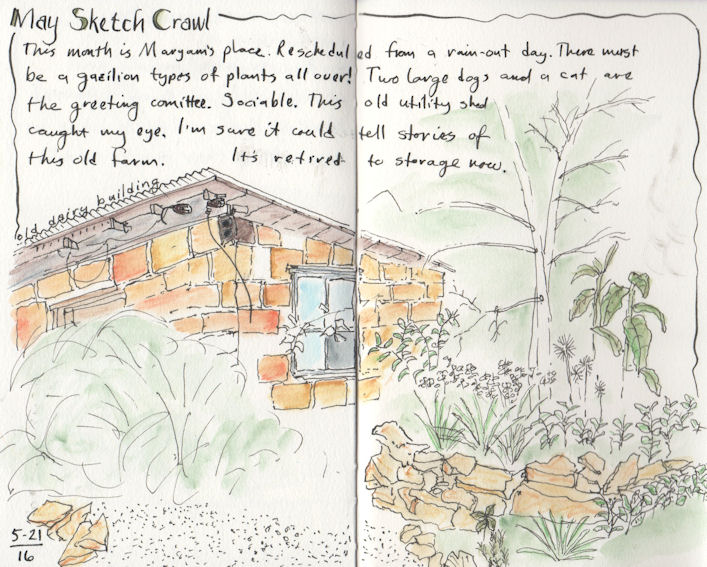 May Sketch Crawl
This month is Maryam's place. Rescheduled from a rain-out day. There must
be a gazilion types of plants all over! Two large dogs and a cat are
the greeting comittee. Sociable. This old utility shed
caught my eye. I'm sure it could tell stories of
this old farm. It's retired to storage now.
old dairy building
5-21
16